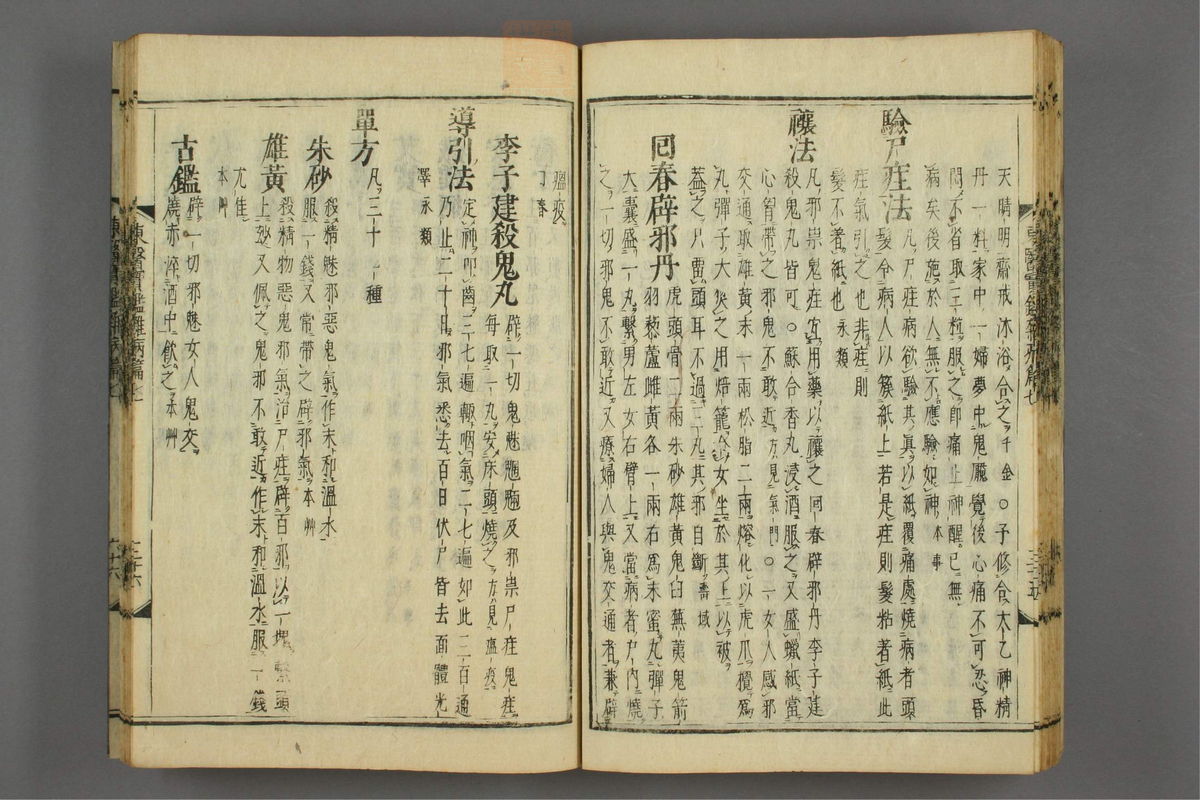 天晴明齋戒沐浴合之千金○子修合太乙神精
丹一料家中一婦夢中鬼魘覺後心痛不可忍昏
悶不省取三粒服之卽痛止神醒已無
病矣後施於人無不應驗如神本事
驗尸疰法凡尸疰病欲驗其眞以紙覆痛處燒病者頭
髮令病人以簇紙上若是疰則髮粘著紙此
疰氣引之也非疰則
髮不著紙也永類
禳法凡邪祟鬼疰宜用藥以禳之回春辟邪丹李子建
殺鬼丸皆可○蘇合香丸浸酒服之又盛蠟紙當
心胷帶之邪鬼不敢近方見氣門○一女人感邪
交通取雄黃末一兩松脂二兩熔化以虎爪攪爲
丸彈子大夾之用焙籠令女坐於其上以被
蓋之只露頭耳不過三丸其邪自斷壽域
回春辟邪丹虎頭骨二兩朱砂雄黃鬼臼蕪荑鬼箭
羽藜蘆雌黃各一兩右爲末蜜丸彈子
大囊盛一丸繫男左女右臂上又當病者戶內燒
之一切邪鬼不敢近又療婦人與鬼交通者兼辟
瘟疫
回春
李子建殺鬼丸辟一切鬼魅魍魎及邪祟尸疰鬼疰
每取一丸安床頭燒之方見瘟疫
導引法定神叩齒二七遍輒咽氣二七遍如此三百通
乃止二十日邪氣悉去百日伏尸皆去面體光
澤永類
單方凡三十一種
朱砂殺精魅邪惡鬼氣作末和溫水
服一錢又常帶之辟邪氣本艸
雄黃殺精物惡鬼邪氣治尸疰辟百邪以一塊繫頭
上玅又佩之鬼邪不敢近作末和溫水服一錢
尤佳
本艸
古鑑辟一切邪魅女人鬼交
燒赤淬酒中飮之本艸
東醫寶鑑雜病篇七
三十五
東醫寶鑑雜病篇七
三十六